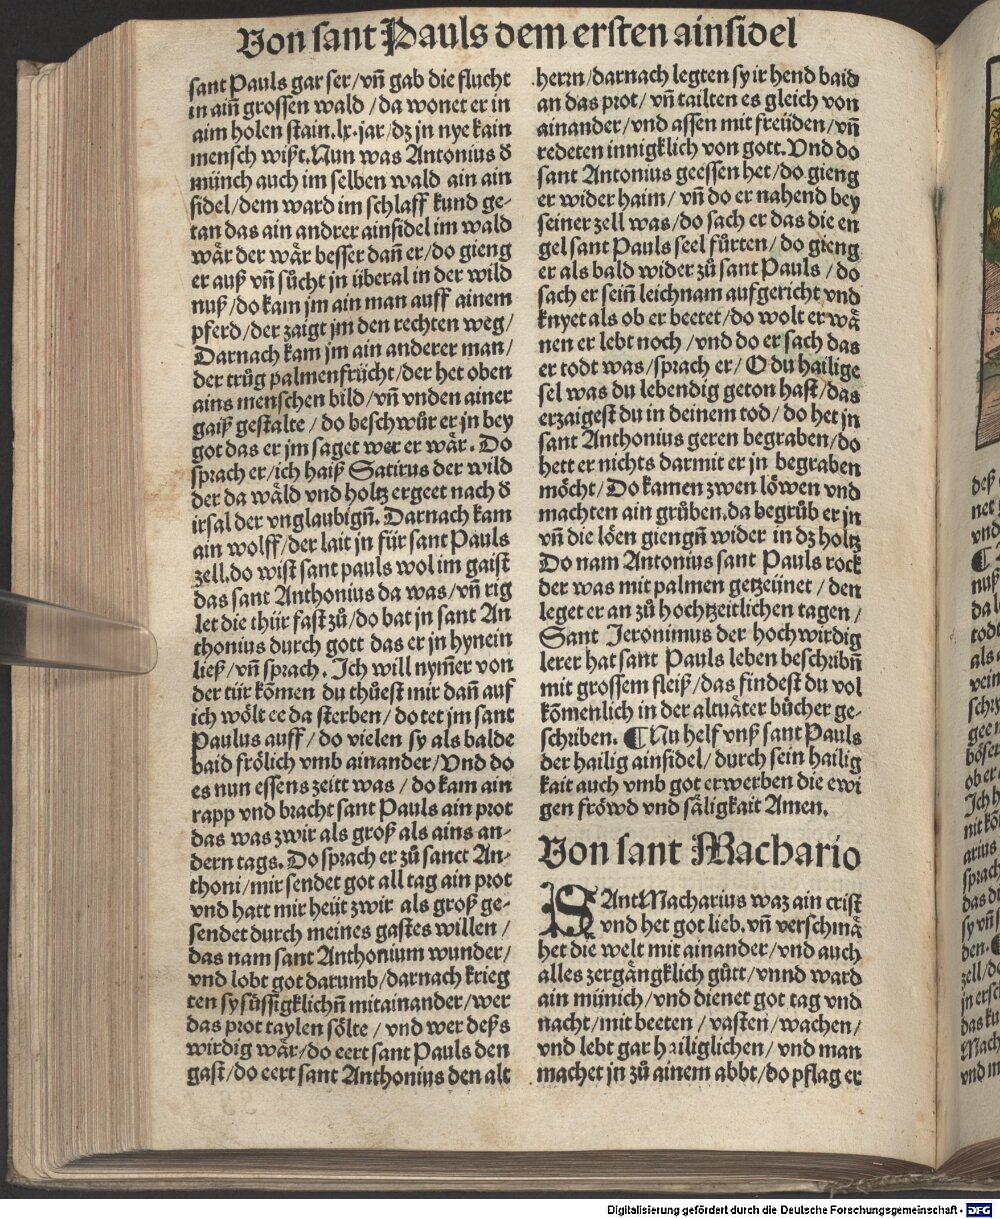 Von sant Pauls dem ersten ainsidel
sant Pauls gar ser/vñ gab die flucht
in ainẽ grossen wald /da wonet er in
aim holen stain.lx.jar/dz jn nye kain
mensch wißt.Nun was Antonius d̕
münch auch im selben wald ain ain
sidel/dem ward im schlaff kund ge-
tan das ain andrer ainsidel im wald
wår der wår besser dañ er/do gieng
er auß vñ sůcht jn überal in der wild
nuß/do kam jm ain man auff ainem
pferd/der zaigt jm den rechten weg/
Darnach kam jm ain anderer man/
der trůg palmenfrücht/der het oben
ains menschen bild/vñ vnden ainer
gaiß gestalte/do beschwůr er jn bey
got das er jm saget wer er wår. Do
sprach er/ich haiß Satirus der wild
der da wåld vnd holtz ergeet nach d̕
irsal der vnglaubigñ. Darnach kam
ain wolff/der lait jn für sant Pauls
zell.do wist sant pauls wol im gaist
das sant Anthonius da was/vñ rig
let die thür fast zů/do bat jn sant An
thonius durch gott das er jn hynein
ließ/vñ sprach. Ich will nym̃er von
der tür kõmen du thůest mir dañ auf
ich wölt ee da sterben/do tet jm sant
Paulus auff/do vielen sy als balde
baid frölich vmb ainander/Vnd do
es nun essens zeitt was/do kam ain
rapp vnd bracht sant Pauls ain prot
das was zwir als groß als ains an-
dern tags. Do sprach er zů sanct An-
thoni/mir sendet got all tag ain prot
vnd hatt mir heüt zwir als groß ge-
sendet durch meines gastes willen/
das nam sant Anthonium wunder/
vnd lobt got darumb/darnach krieg
ten sy süssigklichñ mitainander/wer
das prot taylen sölte/vnd wer deßs
wirdig wår/do eert sant Pauls den
gast/do eert sant Anthonius den alt
herrn/darnach legten sy ir hend baid
an das prot/vñ tailten es gleich von
ainander/vnd assen mit freüden/vñ
redeten innigklich von gott.Vnd do
sant Antonius geessen het/do gieng
er wider haim/vñ do er nahend bey
seiner zell was/do sach er das die en
gel sant Pauls seel fůrten/do gieng
er als bald wider zů sant Pauls/do
sach er seinñ leichnam aufgericht vnd
knyet als ob er beetet/do wolt er wå
nen er lebt noch/vnd do er sach das
er todt was/sprach er/O du hailige
sel was du lebendig geton hast/das
erzaigest du in deinem tod/do het jn
sant Anthonius geren begraben/do
hett er nichts darmit er jn begraben
möcht/Do kamen zwen löwen vnd
machten ain grůben.da begrůb er jn
vñ die löen giengñ wider in dz holtz
Do nam Antonius sant Pauls rock
der was mit palmen getzeünet/den
leget er an zů hochtzeitlichen tagen/
Sant Jeronimus der hochwirdig
lerer hat sant Pauls leben beschribñ
mit grossem fleiß/das findest du vol
kõmenlich in der altuåter bůcher ge-
schriben. ¶Nu helf vnß sant Pauls
der hailig ainsidel/durch sein hailig
kait auch vmb got erwerben die ewi
gen fröwd vnd såligkait Amen.
Von sant Machario
SAntMacharius waz ain crist
vnd het got lieb.vñ verschmå
het die welt mit ainander/vnd auch
alles zergångklich gůtt/vnnd ward
ain münich/vnd dienet got tag vnd
nacht/mit beeten/vasten/wachen/
vnd lebt gar hailiglichen/vnd man
machet jn zů ainem abbt/do pflag er
Digitalisierung gefördert durch die Deutsche Forschungsgemeinschaft - DFG